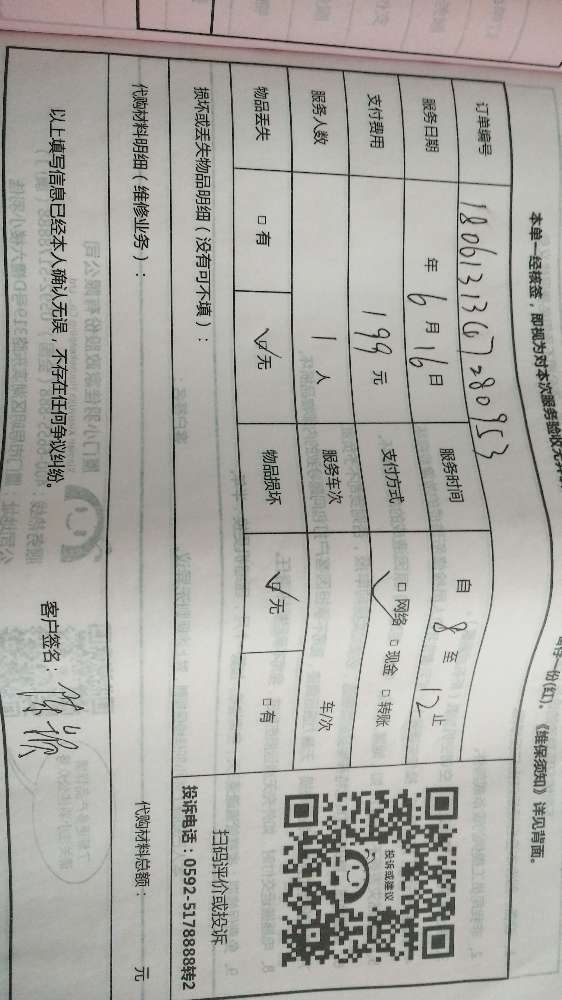 本单一经核签，即视为对本次服务验收无
份(红)。《维保须知》详见背面。
订单编号
服务日期 年 6 月 16 日 服务时间 自 8 至 12 止
支付费用 199 元 支付方式 □ 网络 □ 现金 □ 转账
服务人数 1 人 服务车次 车/次
物品丢失 □ 有 □ 无 物品损坏 □ 无 □ 有
投诉或建议
扫码评价或投诉
投诉电话：0592-5178888转2
损坏或丢失物品明细（没有可不填）：
代购材料明细（维修业务）： 代购材料总额： 元
以上填写信息已经本人确认无误，不存在任何争议纠纷。 客户签名：